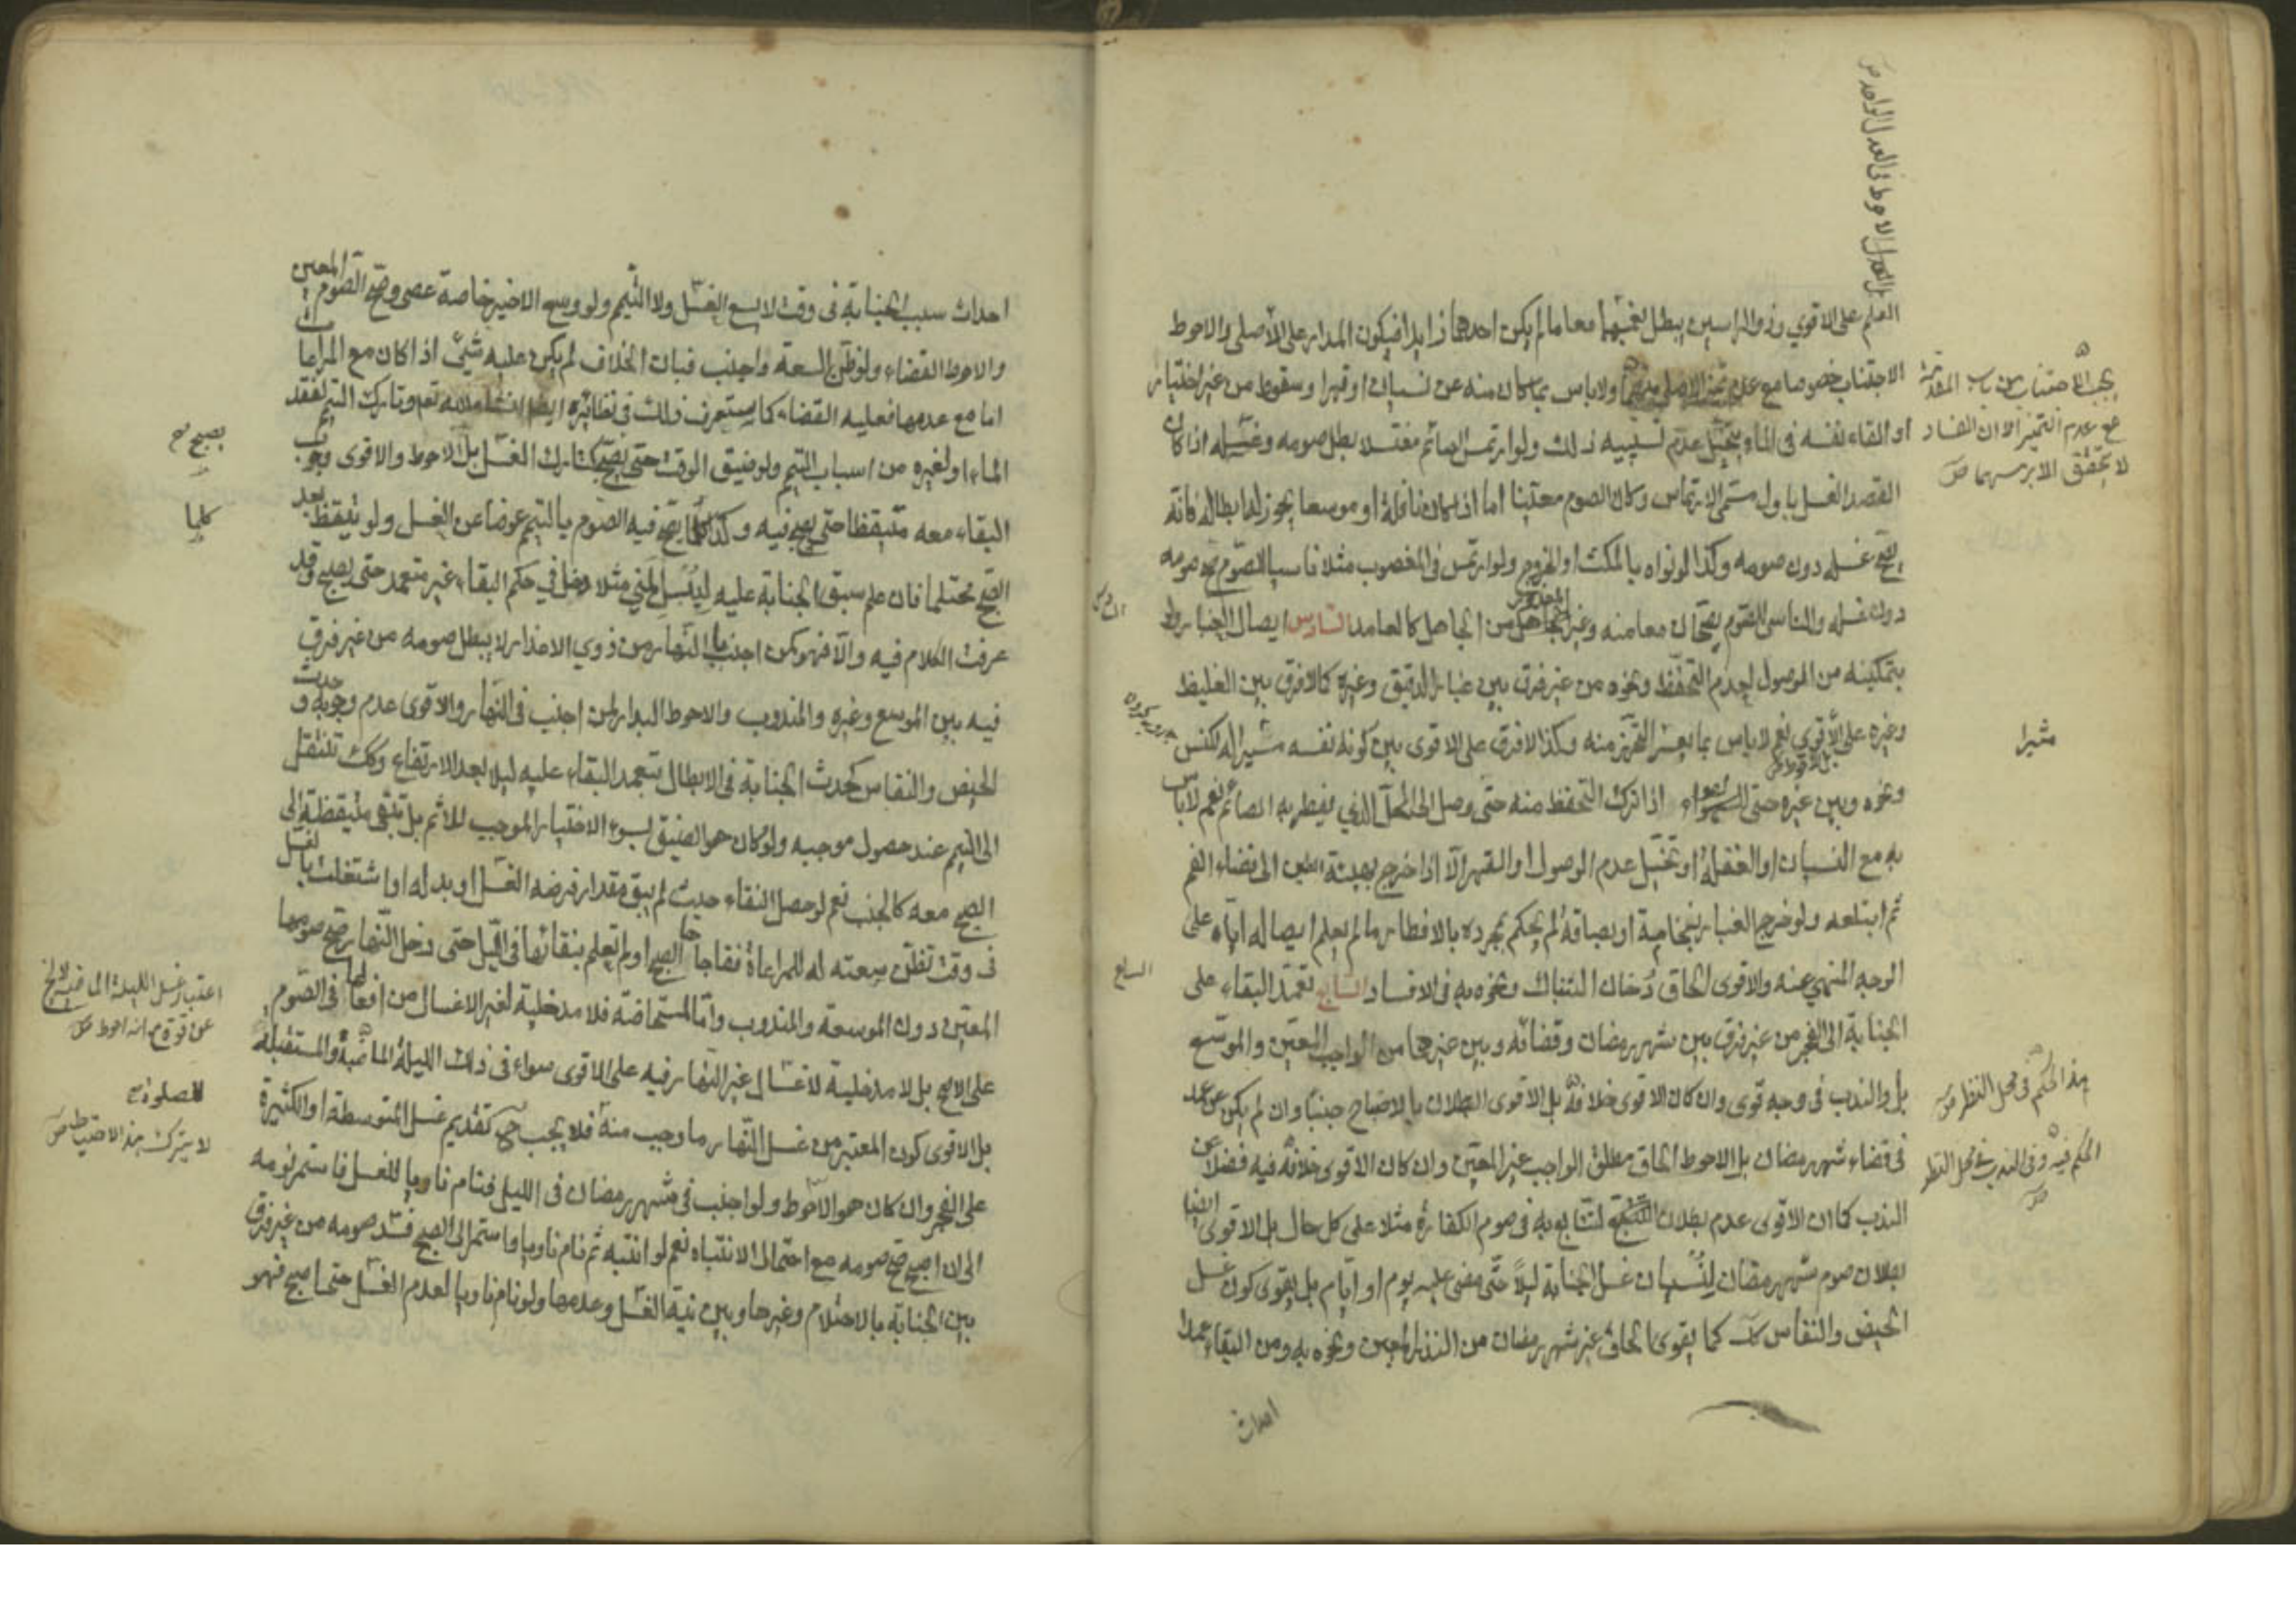 العلم على الاقوي وذو الراسين يبطل بغمسهما معا ما لم يكن احدهما زايدا فيكون المدار على الأصلي والاحوط
الاجتناب خصوصا مع عدم تميز الاصلي منهما ولا باس بما كان منه عن نسيان او قهرا وسقوط من غير اختيار
او القاء نفسه في الماء بتخيّل عدم تسبيبه ذلك ولو ارتمس الصائم مغتسلا بطل صومه وغسله اذا كان
القصد الغسل باول مسمى الارتماس وكان الصوم معينا اما اذا كان نافلة او موسعا يجوز له ابطاله فانه
يصح غسله دون صومه وكذا لو نواه بالمكث او الخروج ولو ارتمس في المغصوب مثلا ناسيا للصوم صح صومه
دون غسله والناسي للصوم يصحان معا منه وغير المعذور من الجاهل كالعامد السادس ايصال الغبار ولو
بتمكينه من الوصول لعدم التحفّظ ونحوه من غير فرق بين غبار الدقيق وغيره كالا فرق بين الغليظ
وغيره على الأقوي نعم لا باس بما يعسر التحرز منه وكذا لا فرق على الاقوى بين كونه نفسه مثيرا له لكنس
ونحوه وبين غيره حتى الهواء اذا ترك التحفظ منه حتى وصل الى المحلّ الذي يفطر به الصائم نعم لا باس
به مع النسيان او الغفلة او تخيّل عدم الوصول او القهر الّا اذا خرج بهيئة الطين الى فضاء الفم
ثم ابتلعه ولو خرج الغبار بنخامية او بصاقة لم يحكم بمجرده بالافطار ما لم يعلم ايصاله اياه على
الوجه المنهي عنه والاقوى الحاق دُخان التنباك ونحوه به في الافساد السابع تعمّد البقاء على
الجنابة الى الفجر من غير فرق بين شهر رمضان وقضائه وبين غيرهما من الواجب المعيّن والموسّع
بل والندب في وجه قوى وان كان الاقوى خلافه بل الاقوى البطلان بالاصباح جنبًا وان لم يكن عن عمد
في قضاء شهر رمضان بل الاحوط الحاق مطلق الواجب غير المعيّن وان كان الاقوى خلافه فيه فضلا عن
الندب كما ان الاقوى عدم بطلان التتابع به في صوم الكفارة مثلا على كل حال بل الاقوى ايضا
بطلان صوم شهر رمضان لِنسيان غسل الجنابة ليلًا حتّى مضى عليه يوم او ايّام بل يقوى كون غسل
الحيض والنفاس كك كما يقوى الحاق غير شهر رمضان من النذر المعين ونحوه به ومن البقاء عمدا
احداث
يجب الاجتناب من باب المقدمة
مع عدم التميز الا ان الفساد
لا يتحقق الا برمسهما
السادس
مثيرا
السابع
هذا الحكم في محل النظر
الحكم فيه وفي الندب في محل النظر
احداث سبب الجنابة في وقت لا يسع الغسل ولا التيمم ولو وسع الاخير خاصة عصى وصح الصوم المعين
والاحوط القضاء ولو ظن السعة واجنب فبان الخلاف لم يكن عليه شيء اذا كان مع المراعاة
اما مع عدمها فعليه القضاء كما ستعرف ذلك في نظائره ايضا ان شاء الله تعم وتارك التيمم لفقد
الماء او لغيره من اسباب التيمم ولو ضيق الوقت حتى يصبح كتارك الغسل بل الاحوط والاقوى وجوب
البقاء معه متيقظا حتى يصبح فيه وكذا كلما يصح فيه الصوم بالتيمم عوضا عن الغسل ولو تيقظ بعد
الصبح محتلما فان علم سبق الجنابة عليه ليبس المني مثلا دخل في حكم البقاء غير متعمد حتى يصبح وقد
عرفت الكلام فيه والّا فهو كمن اجنب بالنهار من ذوي الاعذار لا يبطل صومه من غير فرق
فيه بين الموسع وغيره والمندوب والاحوط البدار لمن اجنب في النهار والاقوى عدم وجوبه وحدث
الحيض والنفاس كحدث الجنابة في الابطال بتعمد البقاء عليه ليلا بعد الارتفاع وكك تنتقل
الى التيمم عند حصول موجبه ولو كان هو الضيق بسوء الاختيار الموجب للاثم بل تبقى متيقظة الى
الصبح معه كالجنب نعم لو حصل النقاء حيث لم يبق مقدار فرضه الغسل او بدله او اشتغلت بالغسل
في وقت تظن سعته له للمراعاة ففاجاها الصبح او لم تعلم بنقائها في الليل حتى دخل النهار صح صومها
المعين دون الموسعة والمندوب وأمّا المستحاضة فلا مدخلية لغير الاغسال من افعالها في الصوم
على الاصح بل لا مدخلية لاغسال غير النهار فيه على الاقوى سواء في ذلك الليلة الماضية والمستقبلة
بل الاقوى كون المعتبر من غسل النهار ما وجب منه فلا يجب ح تقديم غسل المتوسطة او الكثيرة
على الفجر وان كان هو الاحوط ولو اجنب في شهر رمضان في الليل فنام ناويا للغسل فاستمر نومه
الى ان اصبح صح صومه مع احتمال الانتباه نعم لو انتبه ثم نام ناويا واستمر الى الصبح فسد صومه من غير فرق
بين الجنابة بالاحتلام وغيرها وبين نية الغسل وعدمها ولو نام ناويا لعدم الغسل حتى اصبح فهو
يصبح
كلما
اعتبار غسل الليلة الماضية لا يخ
عن قوة مع انه احوط
للصلوة
لا يترك هذا الاحتياط